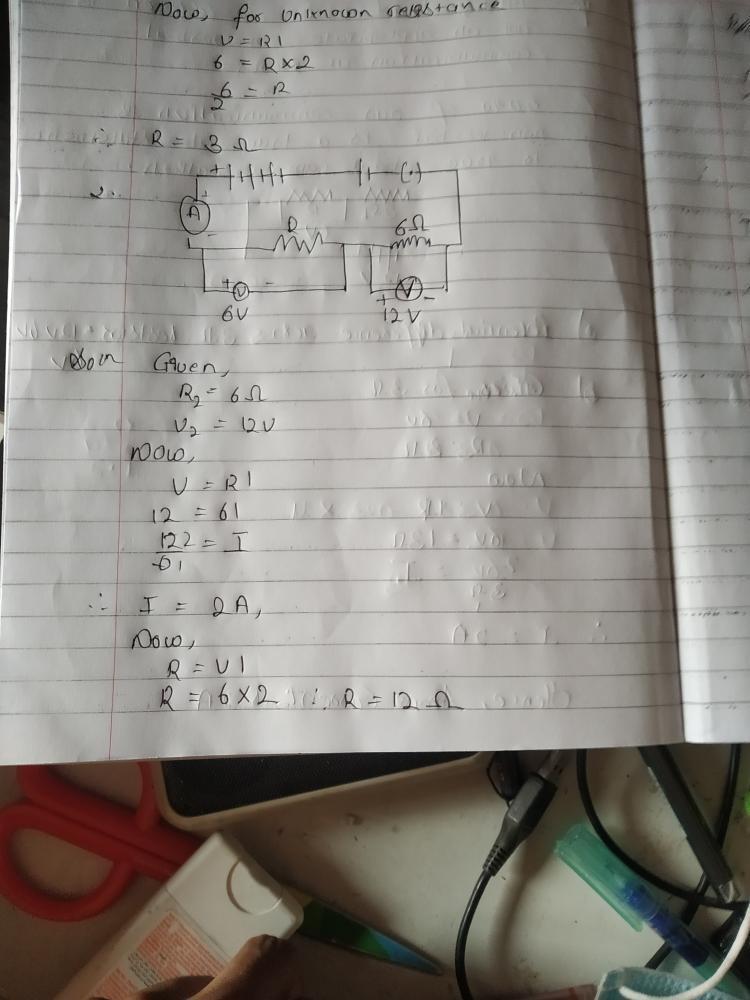 Now, for unknown resistance
V = RI
6 = R×2
6/2 = R
∴ R = 3 Ω
2.
+
A
+
-
R
6Ω
+ V -
+ V -
6V
12V
Given,
R₂ = 6Ω
V₂ = 12V
Now,
V = RI
12 = 6I
12 2/6 1 = I
∴ I = 2A,
Now,
R = VI
R = 6×2 ∴ R = 12 Ω